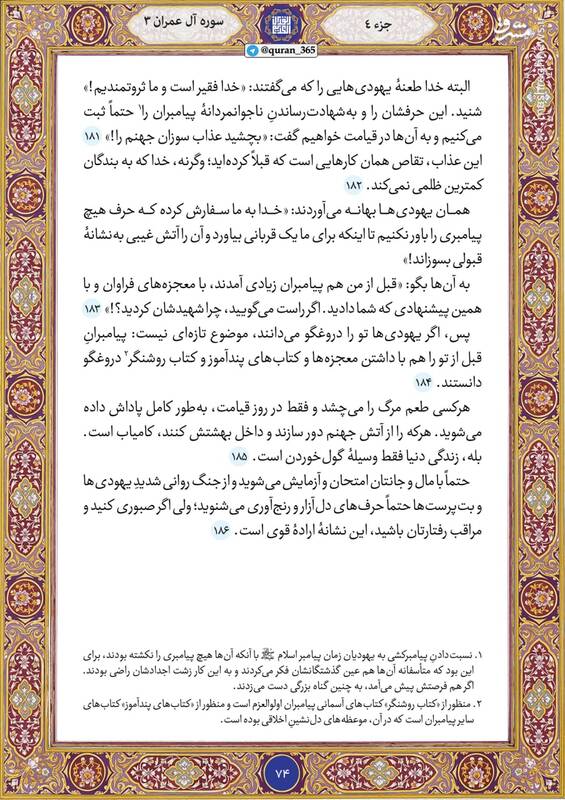 سوره آل عمران ۳
جزء ٤
مشرق
@quran_365
البته خدا طعنهٔ یهودی‌هایی را که می‌گفتند: «خدا فقیر است و ما ثروتمندیم!»
شنید. این حرفشان را و به‌شهادت‌رساندنِ ناجوانمردانهٔ پیامبران را۱ حتماً ثبت
می‌کنیم و به آن‌ها در قیامت خواهیم گفت: «بچشید عذاب سوزان جهنم را!» ۱۸۱
این عذاب، تقاص همان کارهایی است که قبلاً کرده‌اید؛ وگرنه، خدا که به بندگان
کمترین ظلمی نمی‌کند. ۱۸۲
همان یهودی‌ها بهانه می‌آوردند: «خدا به ما سفارش کرده که حرف هیچ
پیامبری را باور نکنیم تا اینکه برای ما یک قربانی بیاورد و آن را آتش غیبی به‌نشانهٔ
قبولی بسوزاند!»
به آن‌ها بگو: «قبل از من هم پیامبران زیادی آمدند، با معجزه‌های فراوان و با
همین پیشنهادی که شما دادید. اگر راست می‌گویید، چرا شهیدشان کردید؟!» ۱۸۳
پس، اگر یهودی‌ها تو را دروغگو می‌دانند، موضوع تازه‌ای نیست: پیامبرانِ
قبل از تو را هم با داشتن معجزه‌ها و کتاب‌های پندآموز و کتاب روشنگر۲ دروغگو
دانستند. ۱۸۴
هرکسی طعم مرگ را می‌چشد و فقط در روز قیامت، به‌طور کامل پاداش داده
می‌شوید. هرکه را از آتش جهنم دور سازند و داخل بهشتش کنند، کامیاب است.
بله، زندگی دنیا فقط وسیلهٔ گول‌خوردن است. ۱۸۵
حتماً با مال و جانتان امتحان و آزمایش می‌شوید و از جنگ روانی شدیدِ یهودی‌ها
و بت‌پرست‌ها حتماً حرف‌های دل‌آزار و رنج‌آوری می‌شنوید؛ ولی اگر صبوری کنید و
مراقب رفتارتان باشید، این نشانهٔ ارادهٔ قوی است. ۱۸۶
۱. نسبت‌دادنِ پیامبرکشی به یهودیان زمان پیامبر اسلام ﷺ با آنکه آن‌ها هیچ پیامبری را نکشته بودند، برای
این بود که متأسفانه آن‌ها هم عین گذشتگانشان فکر می‌کردند و به این کار زشت اجدادشان راضی بودند.
اگر هم فرصتش پیش می‌آمد، به چنین گناه بزرگی دست می‌زدند.
۲. منظور از «کتاب روشنگر» کتاب‌های آسمانی پیامبران اولوالعزم است و منظور از «کتاب‌های پندآموز» کتاب‌های
سایر پیامبران است که در آن، موعظه‌های دل‌نشینِ اخلاقی بوده است.
۷۴